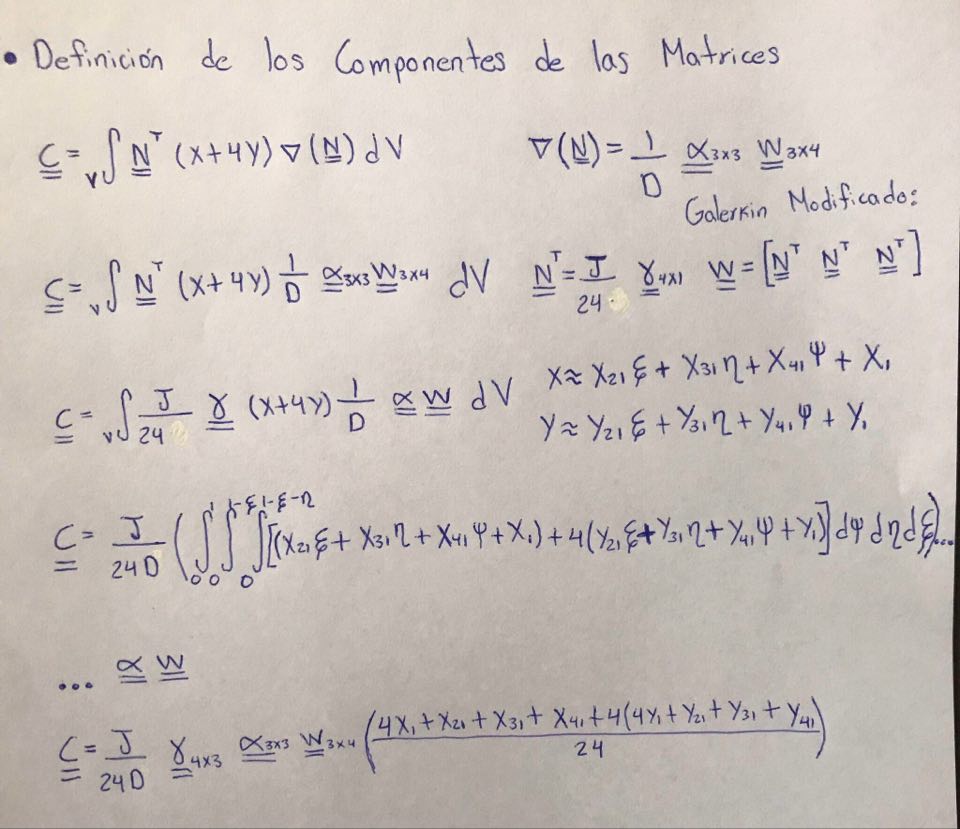 • Definición de los Componentes de las Matrices
C = ᵥ∫ Nᵀ (x+4y) ∇(N) dV    ∇(N) = 1/D α₃ₓ₃ W₃ₓ₄
Galerkin Modificado:
C = ᵥ∫ Nᵀ (x+4y) 1/D α₃ₓ₃ W₃ₓ₄ dV    Nᵀ = J/24 γ₄ₓ₁    W = [Nᵀ Nᵀ Nᵀ]
x ≈ x₂₁ξ + x₃₁η + x₄₁ψ + x₁
C = ᵥ∫ J/24 γ (x+4y) 1/D α W dV
y ≈ y₂₁ξ + y₃₁η + y₄₁ψ + y₁
C = J/24D (∫₀¹ ∫₀^(1-ξ) ∫₀^(1-ξ-η) [(x₂₁ξ + x₃₁η + x₄₁ψ + x₁) + 4(y₂₁ξ + y₃₁η + y₄₁ψ + y₁)] dψ dη dξ)...
... α W
C = J/24D γ₄ₓ₃ α₃ₓ₃ W₃ₓ₄ (4x₁ + x₂₁ + x₃₁ + x₄₁ + 4(4y₁ + y₂₁ + y₃₁ + y₄₁)/24)